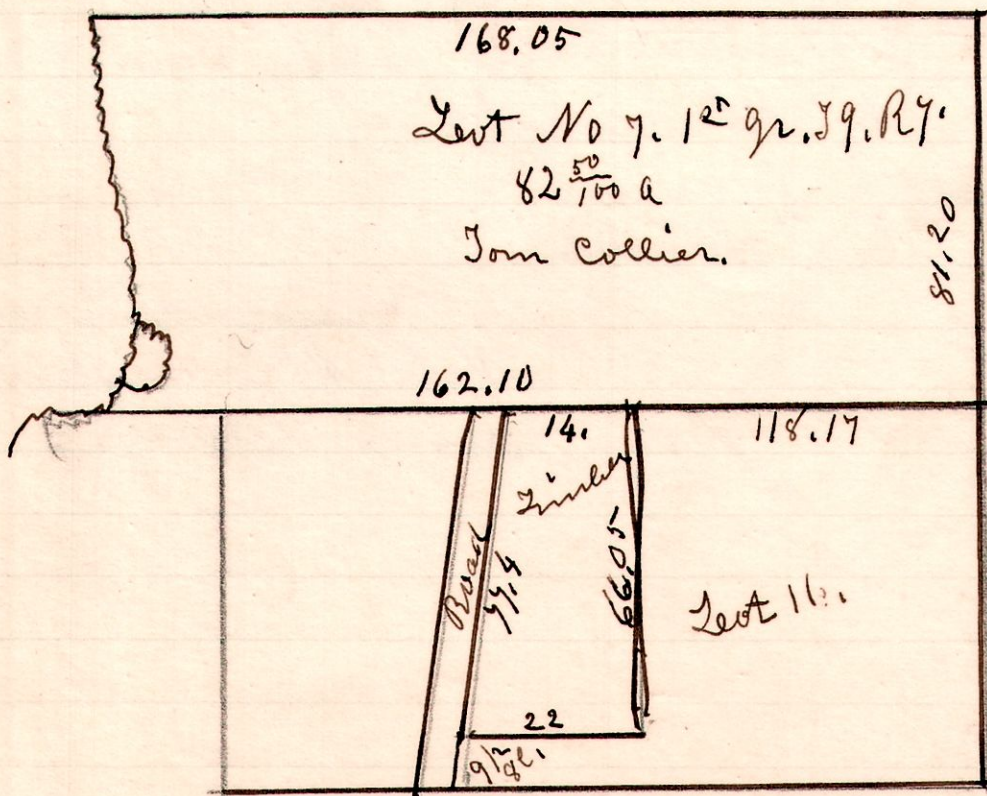 168.05
Lot No 7. 1st gr. T9. R7.
82 50/100 a
Tom Collier.
81.20
162.10
14.
118.17
Timber
Road
77.4
66.05
Lot 16.
22